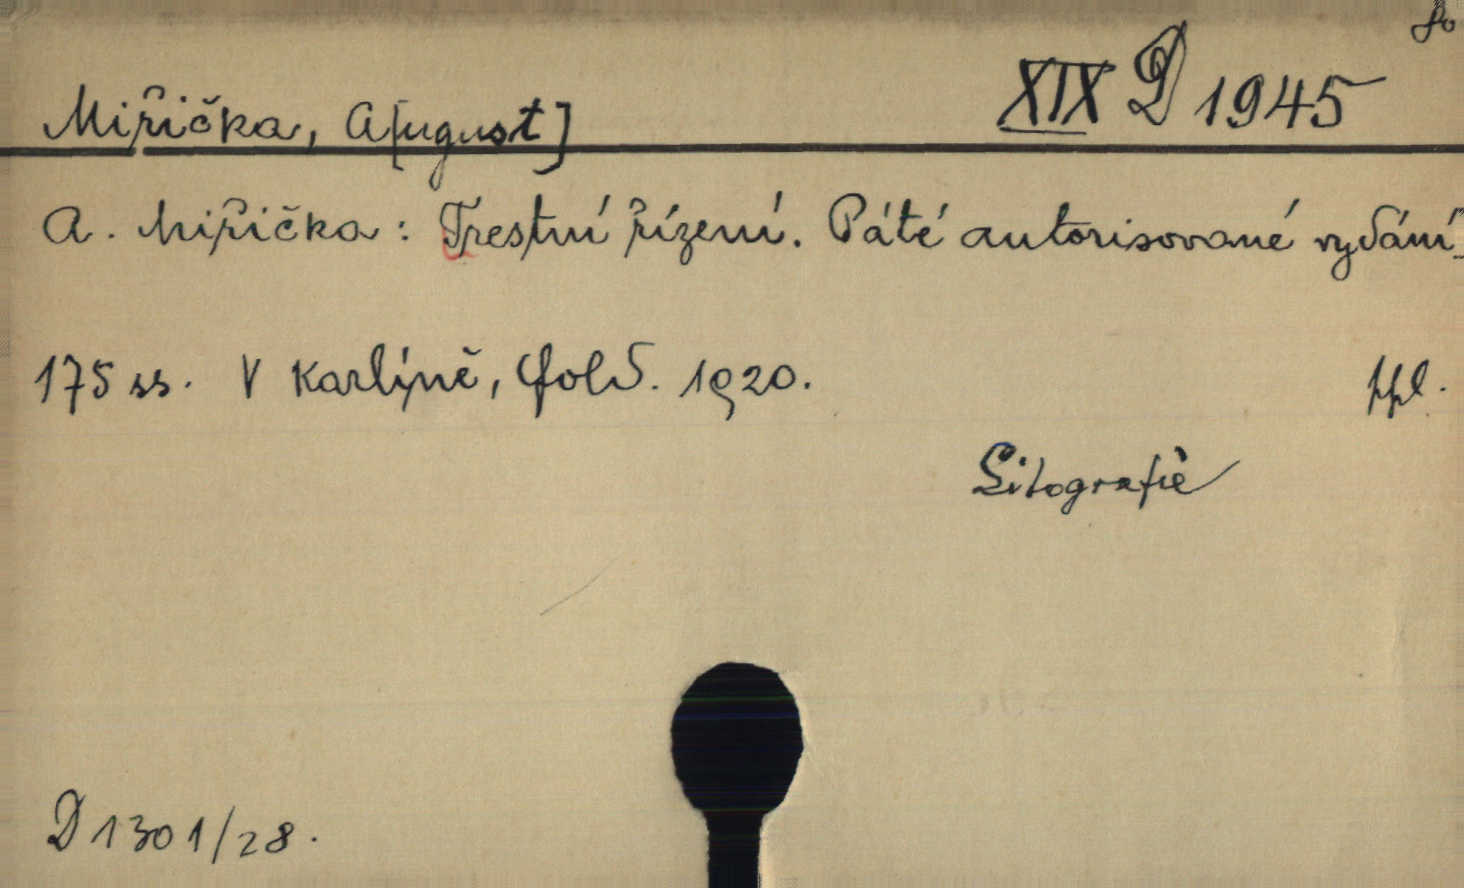 XIX D 1945
Miřička, A[ugust]
A. Miřička: Trestní řízení. Páté autorisované vydání.
175 ss. V Karlíně, Gold. 1920. ppl.
Litografie
D 1301/28.